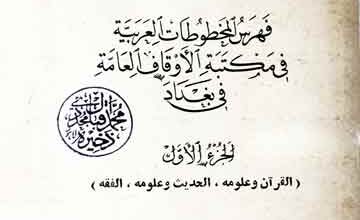 فهرس المخطوطات العربية
في مكتبة الأوقاف العامة
في بغداد
الجزء الأول
( القرآن وعلومه ، الحديث وعلومه ، الفقه )
محمد
ذخيره